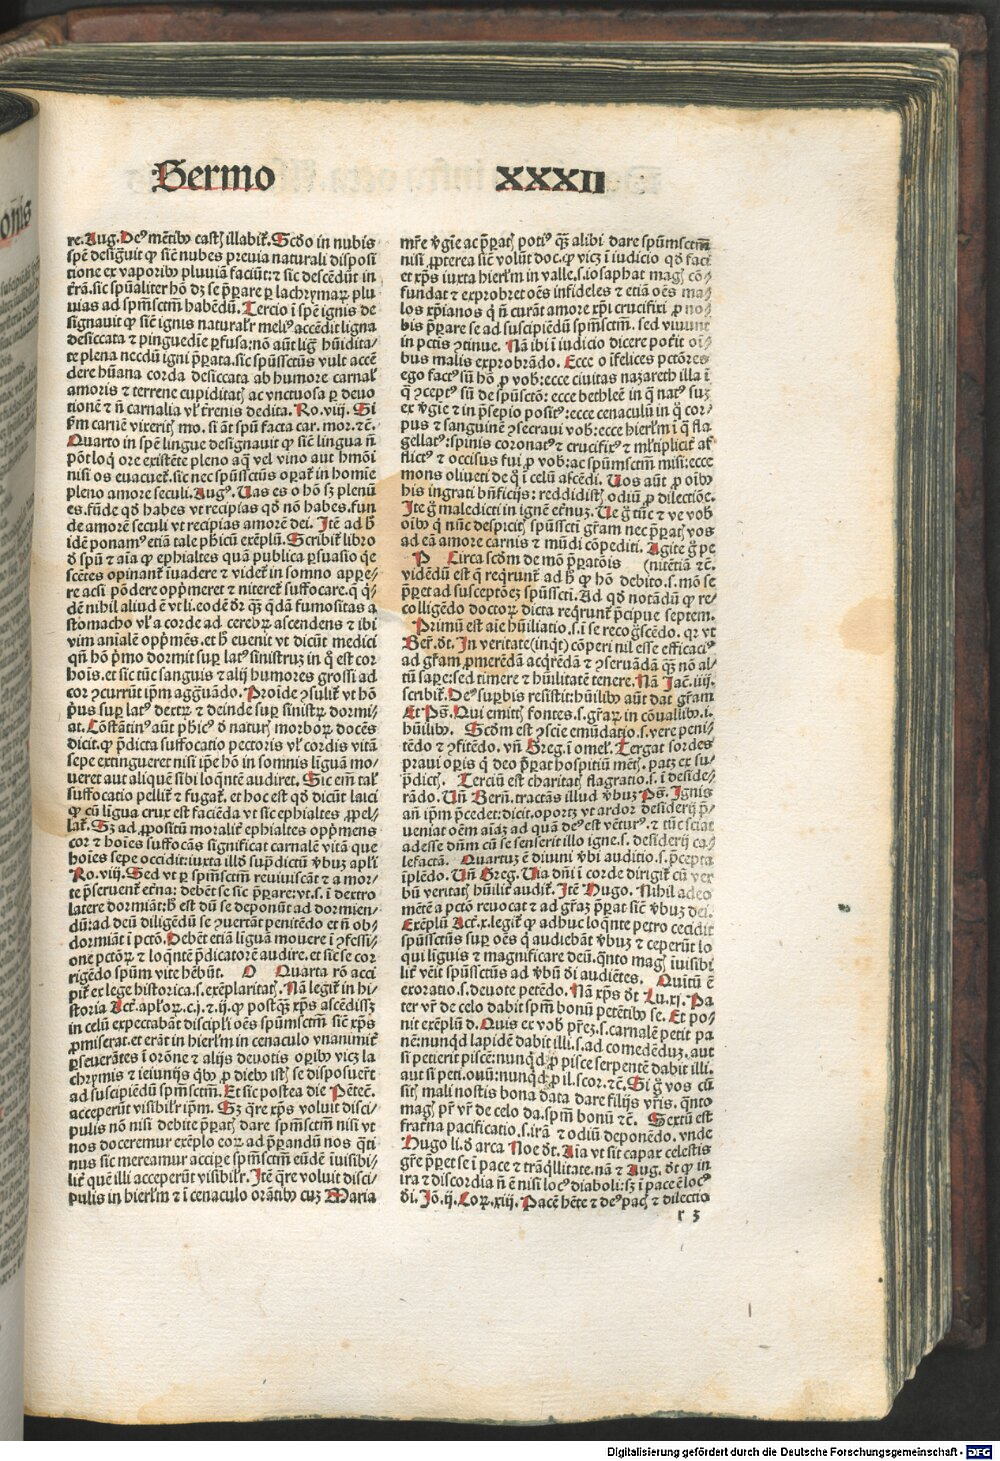 Sermo XXXII
re. Aug. Deꝰ mẽtibꝰ castꝭ illabit᷑. Scḋo in nubis
spẽ desigͣuit ꝙ sic̃ nubes p̃euia naturali disposi
tione ex vaporibꝰ pluuiã faciũt: ⁊ sic descẽdũt in
t̃rã. sic spũaliter hõ dꝫ se p̃parare ꝑ lachrymaꝝ plu
uias ad spm̃sctm̃ habẽdũ. Tercio ĩ spẽ ignis de
signauit ꝙ sic̃ ignis naturalr̃ meliꝰ accẽdit ligna
desiccata ⁊ pinguedĩe ꝑfusa: nõ aũt ligͣ hũidita/
te plena necdũ igni p̃parata. sic spũssctũs vult accẽ
dere hũana corda desiccata ab humore carnal̃
amoris ⁊ terrene cupiditatꝭ ac vnctuosa ꝑ deuo
tionẽ ⁊ ñ carnalia vl̃ t̃renis dedita. Ro. viij. Si
ẜm carnẽ vixeritꝭ mo. si ãt spũ facta car. mor. ⁊c̃.
Quarto in spẽ lingue designauit ꝙ sic̃ lingua ñ
põt loq̇ ore existẽte pleno aq̃ vel vino aut hmõi
nisi os euacuet᷑. sic nec spũssctũs oꝑat᷑ in homĩe
pleno amore seculi. Augꝰ. Uas es o hõ sꝫ plenũ
es. fũde qḋ habes vt recipias qḋ nõ habes. fun
de amorẽ seculi vt recipias amorẽ dei. Itẽ ad ħ
idẽ ponamꝰ etiã tale ꝓhicũ exẽplũ. Scribit᷑ libro
ḋ spũ ⁊ aĩa ꝙ ephialtes quã publica ꝑsuasio q̇e
scẽtes opinant᷑ ĩuadere ⁊ videt᷑ in somno appre/
re acsi põdere opp̃meret ⁊ niteret᷑ suffocare. q̇ q̇/
dẽ nihil aliud ẽ vt li. eodẽ dr̃ qꝫ̃ q̃dã fumositas a
stomacho vl̃ a corde ad cerebrũ ascendens ⁊ ibi
vim anialẽ opp̃mẽs. et ħ euenit vt dicũt medici
qñ hõ p̃mo dormit suꝑ latꝰ sinistruꝫ in q̊ est cor
hois. et sic tũc sanguis ⁊ alij humores grossi ad
cor ɔcurrũt ip̃m aggͣuãdo. Proĩde ɔsulit᷑ vt hõ
p̃us suꝑ latꝰ dextrũ ⁊ deinde suꝑ sinistrũ dormi/
at. Cõstãtinꝰ aũt phicꝰ ḋ naturꝭ morboꝝ docẽs
dicit. ꝙ p̃dicta suffocatio pectoris vl̃ cordis vitã
sepe extingueret nisi ip̃e hõ in somnis liguã mo/
ueret aut aliquẽ sibi loq̃ntẽ audiret. Sic em̃ tal̃
suffocatio pellit᷑ ⁊ fugat᷑. et hoc est qḋ dicũt laici
ꝙ cũ lĩgua crux est faciẽda vt sic ephialtes ꝓpel/
lat᷑. Sꝫ ad ꝓpositũ moralit̃ ephialtes opp̃mens
cor ⁊ hoĩes suffocãs significat carnalẽ vitã que
hoĩes sepe occidit: iuxta illḋ sup̃dictũ v̉buꝫ apl̃i
Ro. viij. Sed vt ꝑ spm̃sctm̃ reuiuiscãt ⁊ a mor/
te p̃seruent᷑ et̃na: debẽt se sic p̃parare: vt. s. ĩ dextro
latere dormiãt: ħ est dũ se deponũt ad dormien/
dũ: ad deũ diligẽdũ se ɔuertãt penitẽdo et ñ ob/
dormiãt ĩ pctõ. Debẽt etiã liguã mouere ĩ ɔfessi/
one pctõꝝ ⁊ loq̃ntẽ p̃dicatorẽ audire. et sic se cor
rigẽdo spũm vite hẽbũt. O Quarta rõ acci
pit᷑ ex lege historica. s. exẽplaritatꝭ. Nã legit᷑ in hi/
storia Act. apl̃oꝝ. c. j. ⁊. ij. ꝙ postqꝫ̃ xp̃s ascẽdisſꝫ
in celũ expectabãt discipl̃i oẽs spũmsctm̃ sic̃ xp̃s
ꝓmiserat. et erãt in hierl̃m in cenaculo vnanimit̃
ꝑseuerãtes ĩ orõne ⁊ alijs deuotis oꝑibꝰ vicꝫ la
chrymis ⁊ ieiunijs q̇bꝰ ꝓ diebꝰ istꝭ se disposuer̃t
ad suscipiẽdũ spm̃sctm̃. Et sic postea die Pẽtec̃.
acceperũt visibilr̃ ip̃m. Sꝫ q̃re xp̃s voluit disci/
pulis nõ nisi debite p̃paratꝭ dare spm̃sctm̃ nisi vt
nos doceremur exẽplo eoꝝ ad p̃parandũ nos q̃ti
nus sic mereamur accipe spm̃sctm̃ eũdẽ ĩuisibi/
lit̃ quẽ illi acceperũt visibilr̃. Itẽ q̃re voluit disci/
pulis in hierl̃m ⁊ ĩ cenaculo orãtibꝰ cuꝫ Maria
mr̃e v̉gĩe ac p̃paratꝭ potiꝰ qꝫ̃ alibi dare spũmsctm̃
nisi ꝓpterea sic̃ volũt doc. ꝙ vicꝫ ĩ iudicio qḋ faci
et xp̃s iuxta hierl̃m in valle. s. iosaphat magꝭ cõ/
fundat ⁊ exprobret oẽs infideles ⁊ etiã oẽs ma/
los xp̃ianos q̇ ñ curãt amore xp̃i crucifixi ꝓ no/
bis p̃parare se ad suscipiẽdũ spm̃sctm̃. sed viuunt
in pctis ɔtinue. Nã ibi ĩ iudicio dicere poterit oĩ/
bus malis exprobrãdo. Ecce o ĩfelices pctõres
ego factꝰ sũ hõ ꝓ vob̃: ecce ciuitas nazareth illa ĩ
q̃ ɔceptꝰ sũ de spũsctõ: ecce bethleẽ in q̃ natꝰ sum
ex v̉gĩe ⁊ in p̃sepio positꝰ: ecce cenaculũ in q̊ cor/
pus ⁊ sanguinẽ ɔsecraui vob̃: ecce hierl̃m ĩ q̃ fla
gellatꝰ: spinis coronatꝰ ⁊ crucifixꝰ ⁊ ml̃tiplicit̃ af
flictꝰ ⁊ occisus fui ꝓ vob̃: ac spũmsctm̃ misi: ecce
mons oliueti de q̊ ĩ celũ ascẽdi. Uos aũt ꝓ oĩbꝰ
his ingrati bñficijs: reddidistꝭ odiũ ꝓ dilectiõe.
Ite gͦ maledicti in ignẽ et̃nuꝫ. Ue gͦ tũc ⁊ ve vob̃
oĩbꝰ q̇ nũc despicitꝭ spũsscti gr̃am nec p̃paratꝭ vos
ad eã amore carnis ⁊ mũdi cõpediti. Agite gͦ pe
P Circa scḋm de mõ p̃paratõis (nitẽtiã ⁊c̃.
vidẽdũ est q̃ reqrunt᷑ ad ħ ꝙ hõ debito. s. mõ se
p̃paret ad susceptõeꝫ spũsscti. Ad qḋ notãdũ ꝙ re/
colligẽdo doctoꝝ dicta reqrunt᷑ p̃cipue septem.
Primũ est aĩe hũiliatio. s. ĩ se recogͦscẽdo. qꝛ vt
Ber̃. ḋt. In veritate (inq̇t) cõperi nil esse efficaciꝰ
ad gr̃am ꝓmerẽdã acq̇rẽdã ⁊ ɔseruãdã qꝫ̃ nõ al/
tũ saꝑe: sed timere ⁊ hũilitatẽ tenere. Nã Iac. iiij.
scribit᷑. Deꝰ suꝑbis resistit: hũilibꝰ aũt dat gr̃am
Et Ps̃. Qui emittꝭ fontes. s. gr̃aꝝ in cõuallibꝰ. i.
hũilibꝰ. Scḋm est ɔscie emũdatio. s. vere peni/
tẽdo ⁊ ɔfitẽdo. vñ Greg. ĩ omel̃. Tergat sordes
praui oꝑis q̇ deo p̃parat hospitiũ mẽtꝭ. patꝫ et su/
p̃dictꝭ. Terciũ est charitatꝭ flagratio. s. ĩ deside/
rãdo. Uñ Berñ. tractãs illud v̉buꝫ Ps̃. Ignis
añ ip̃m p̃cedet: dicit. oportꝫ vt ardor desiderij p̃/
ueniat oẽm aĩaꝫ ad quã deꝰ est vẽturꝰ. ⁊ tũc sciat
adesse dñm cũ se senserit illo igne. s. desiderij ca/
lefactã. Quartuꝫ ẽ diuini v̉bi auditio. s. p̃cepta
ĩplẽdo. Uñ Greg. Uia dñi ĩ corde dirigit᷑ cũ ver
bũ veritatꝭ hũilit̃ audit᷑. Itẽ Hugo. Nihil adeo
mẽtẽ a pctõ reuocat ⁊ ad gr̃aꝫ p̃parat sic̃ v̉buꝫ dei.
Exẽplũ Act. x. legit᷑ ꝙ adhuc loq̃nte petro cecidit
spũssctũs suꝑ oẽs q̇ audiebãt v̉buꝫ ⁊ ceperũt lo
qui liguis ⁊ magnificare deũ. q̃nto magꝭ ĩuisibi
lit̃ veĩt spũssctũs ad v̉bũ di audiẽtes. Quĩtũ ẽ
exoratio. s. deuote petẽdo. Nã xp̃s ḋt Lu. xj. Pa
ter vr̃ de celo dabit spm̃ bonũ petẽtibꝰ se. Et po/
nit exẽplũ ḋ. Quis ex vob̃ pr̃eꝫ. s. carnalẽ petit pa
nẽ: nunqd lapidẽ dabit illi. s. ad comedẽduꝫ. aut
si petierit piscẽ: nunqd ꝓ pisce serpentẽ dabit illi.
aut si peti. ouũ: nunqd ꝓ il. scor. ⁊c̃. Si gͦ vos cũ
sitꝭ mali nostis bona data dare filijs vr̃is. q̃nto
magꝭ pr̃ vr̃ de celo da. spm̃ bonũ ⁊c̃. Sextũ est
frat̃na pacificatio. s. irã ⁊ odiũ deponẽdo. vnde
Hugo li. ḋ arca Noe ḋt. Aĩa vt sit capax celestis
gr̃e p̃paret se ĩ pace ⁊ trãq̇llitate. nã ⁊ Aug. ḋt ꝙ in
ira ⁊ discordia ñ ẽ nisi locꝰ diaboli: sꝫ ĩ pace ẽ locꝰ
ḋi. Iõ. ij. Coꝝ. xiij. Pacẽ hẽte ⁊ deꝰ pacꝭ ⁊ dilectio
r 3
Digitalisierung gefördert durch die Deutsche Forschungsgemeinschaft - DFG